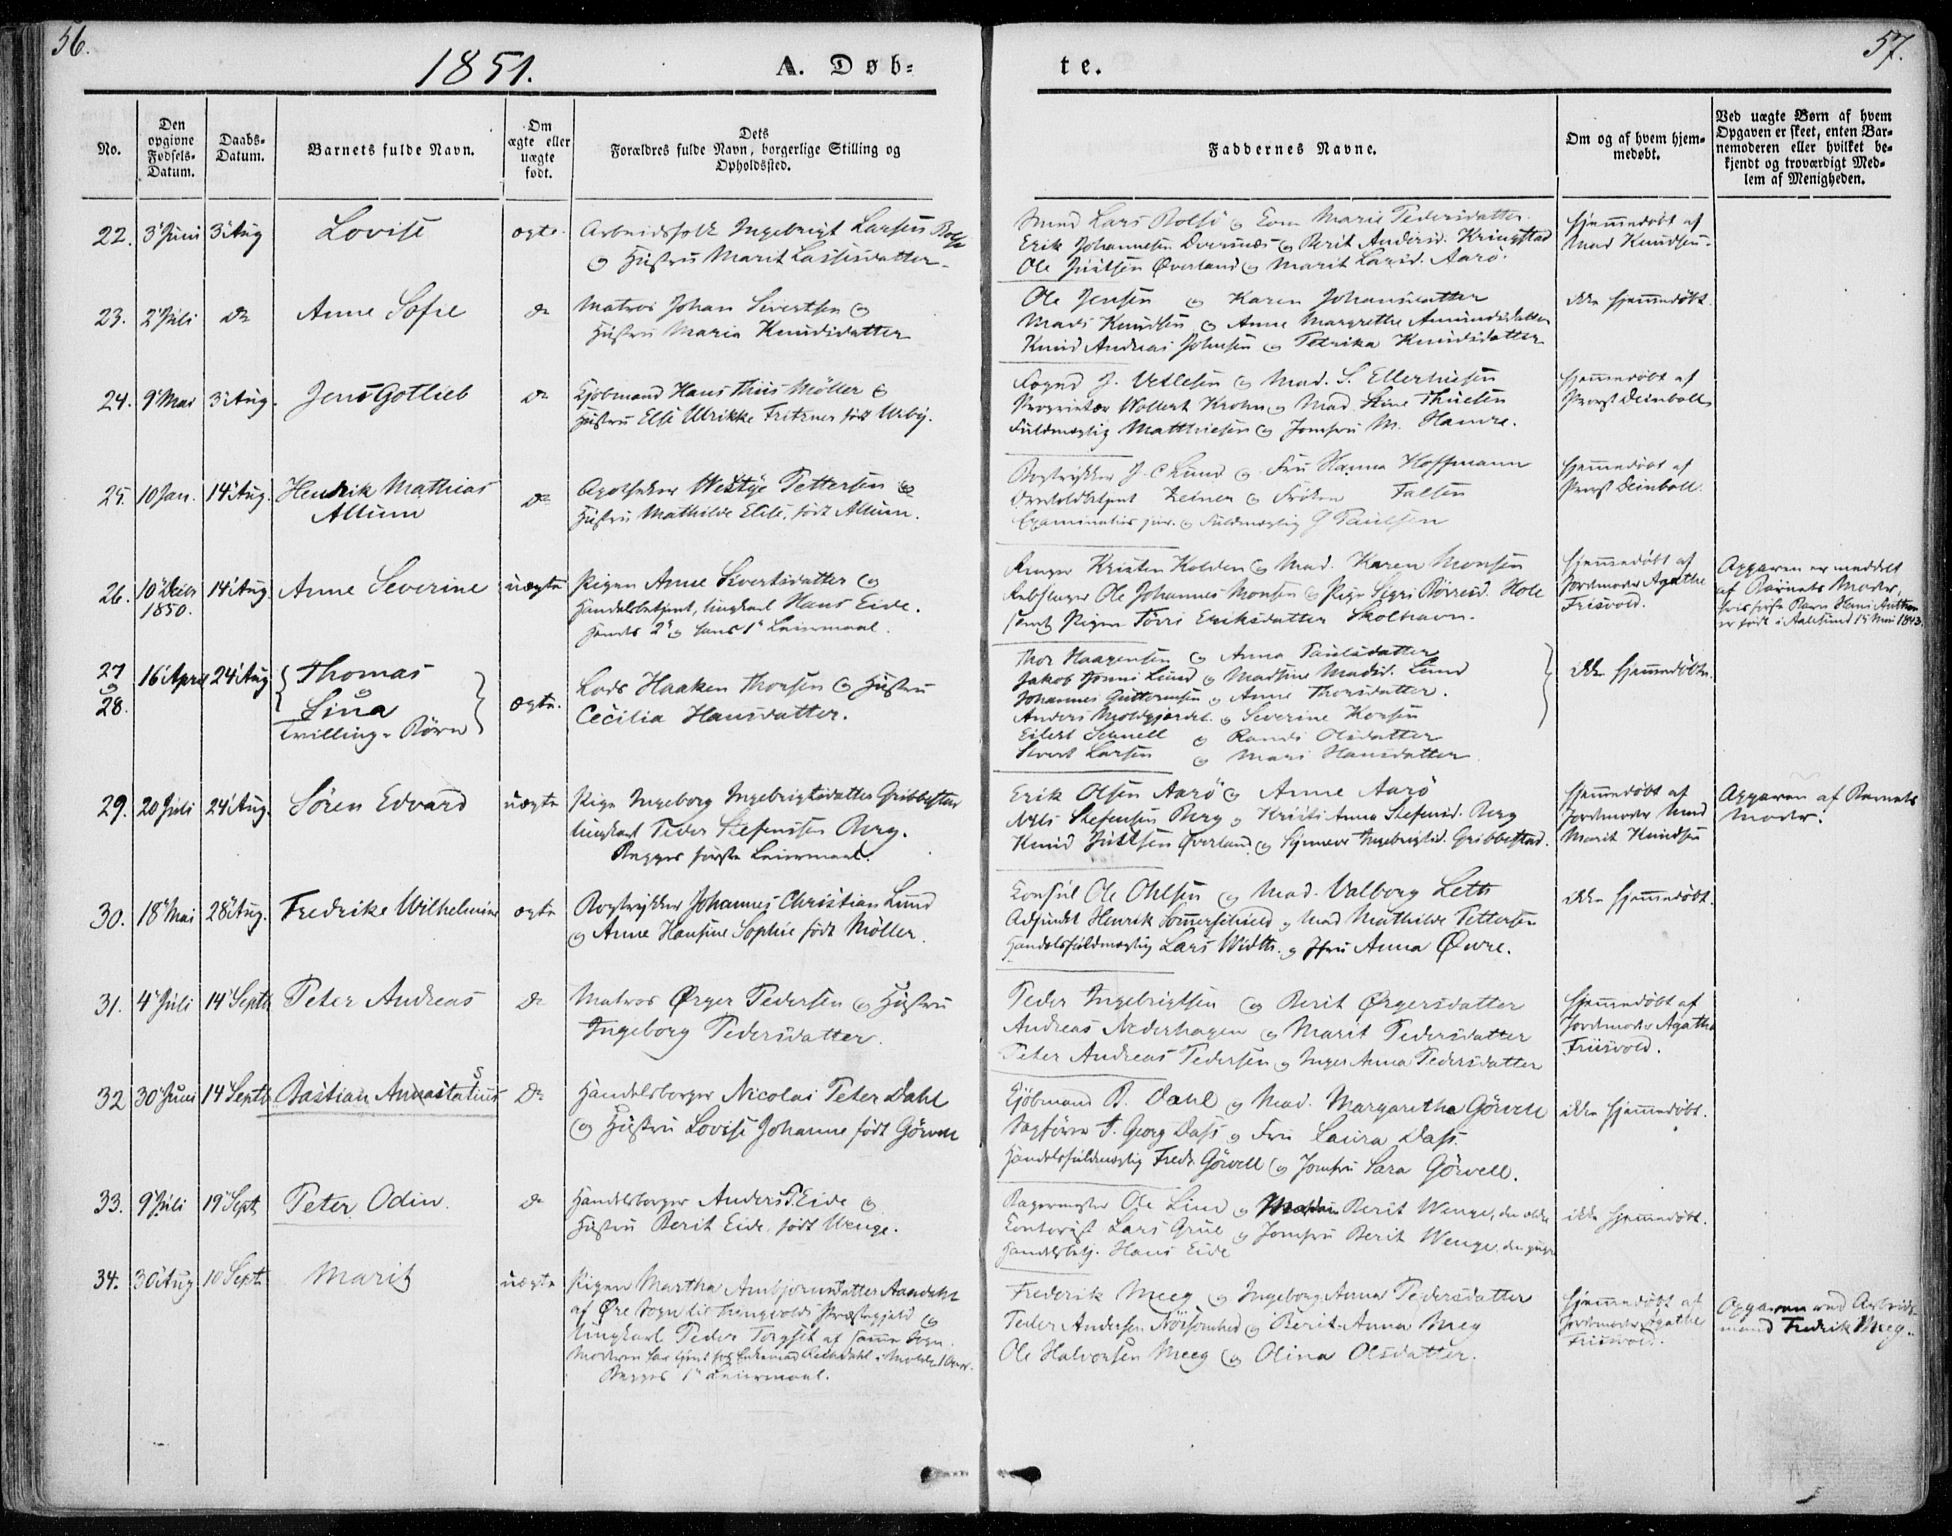 56.
57.
1851.
A. Døb-
te.
No.
Den opgivne Fødsels-Datum.
Daabs-Datum.
Barnets fulde Navn.
Om ægte eller uægte født.
Dets Forældres fulde Navn, borgerlige Stilling og Opholdssted.
Faddernes Navne.
Om og af hvem hjem-medøbt.
Ved uægte Børn af hvem Opgaven er skeet, enten Bar-nemoderen eller hvilket be-kjendt og troværdigt Med-lem af Menigheden.
22. 3 Juni 3 Aug Lovise ægte. Arbeidsfolk Ingebrigt Larsen
og Hustru Marit Lassesdatter.
Lars Rolsø og Marie Pedersdatter.
Erik Johannesen og Berit Andersd. Kringstad
Ole Justsen Øverland og Marit Larsd. Aarö.
hjemmedøbt af
Mad Knudsen.
23. 2 Juli do Anne Sofie do
Matros Johan Sivertsen og
Hustru Maria Knudsdatter
Ole Jensen og Karen Johansdatter
Mads Knudsen og Anne Margrethe Amundsdatter
Knud Andreas Johnsen og Petrika Knudsdatter
ikke hjemmedøbt.
24. 9 Mai 3 Aug. Jens Gotlieb do
Kjöbmand Hans Thiis Möller og
Hustru Else Ulrikke Fritzner født Urbÿ.
Foged J. Vetlesen og Mad. S. Ellerhusen
Proprietær Wollert Krohn og Mad. Stine Thuesen
Fuldmægtig Matthiesen og Jomfru M. Hamre.
hjemmedøbt af
Provst Deinboll
25. 10 Jan. 14 Aug. Hendrik Mathias
Allum
do
Apotheker Westÿe Pettersen og
Hustru Mathilde Elise, født Allum.
Bogtrykker J. C Lund og Fru Hanna Hoffmann
Zeiner og Frøken Falsen
Examinatus jur. og Fuldmægtig G Paulsen
hjemmedøbt af
Provst Deinboll.
26. 10 Decbr
1850. 14 Aug Anne Severine uægte
Pigen Anne Sivertsdatter og
Handelsbetjent, Ungkarl Hans Eide.
Hendes 2de og hans 1te Leiermaal.
Kristen Kolden og Mad. Karen Monsen
Rebslager Ole Johannes Monsen og Pige Sigri Børresd. Hole
samt Pigen Eriksdatter Skolhavn.
hjemmedøbt af
Jordmoder Agathe
Frisvold.
Opgaven er meddelt
af Barnets Moder,
hvis første Barn Hans Anthon
er født i Aalesund 15 Mai 1843.
27
og
28. 16 April 24 Aug
Thomas
Lina
Tvilling-Børn
ægte.
Lods Haaken Thorsen og Hustru
Cecilia Hansdatter.
Thor Haagensen og Anna Paulsdatter
Jakob Lund og Madsine Madsd. Lund
Johannes Guttormsen og Anne Thorsdatter.
Anders Moldegjærdet og Severine Korsen
Eilert Schnell og Randi Olsdatter
Sivert Larsen og Mari Hansdatter
ikke hjemmedøbte.
29. 20 Juli 24 Aug. Sören Edvard uægte
Pige Ingeborg Ingebrigtsdatter Gribbestad
Ungkarl Peder Stefensen Berg.
Begges første Leiermaal.
Erik Olsen Aarö og Anne Aarö
Nils Stefensen Berg og Kristi Anna Stefensd. Berg
Knud Justsen Øverland og Synnøve Ingebrigtsd. Gribbestad.
hjemmedøbt af
Jordmoder Mad
Marit Knudsen
Opgaven af Barnets
Moder.
30. 18 Mai 28 Aug. Fredrike Wilhelmine ægte
Bogtrykker Johannes Christian Lund
og Anne Hansine Sophie født Möller.
Consul Ole Ohlsen og Mad. Valborg Leth
Adjunkt Henrik Sommerschield og Mad Mathilde Pettersen
Handelsfuldmægtig Lars Width og Jfru Anna Øvre.
ikke hjemmedøbt.
31. 4 Juli 14 Septb Peter Andreas do
Matros Ørger Pedersen og Hustru
Ingeborg Pedersdatter.
Peder Ingebrigtsen og Berit Ørgersdatter
Andreas Nederhagen og Marit Pedersdatter
Peter Andreas Pedersen og Inger Anna Pedersdatter
hjemmedøbt af
Jordmoder Agatha
Friisvold.
32 30 Juni 14 Septb Bastian Annastatius do
Handelsborger Nicolai Peter Dahl
og Hustru Lovise Johanne født Görvell
Kjöbmand B. Dahl og Mad. Margaretha Görvell
Sagfører T. Georg Dass og Fru Laura Dass.
Handelsfuldmægtig Fredr. Görvell og Jomfru Sara Görvell.
ikke hjemmedøbt.
33. 9 Juli 19 Sept Peter Odin. do
Handelsborger Anders Eide og
Hustru Berit Eide født Wenge.
Bagermester Ole Lind og Madam Berit Wenge, den ældre
Contorist Lars Grue og Jomfru Berit Wenge, den yngre
Handelsbetj. Hans Eide
ikke hjemmedøbt.
34. 30 Aug 10 Sept. Marit uægte
Pigen Martha Arnbjørnsdatter Aandahl
af Øre Sogn til Thingvolds Præstegjeld og
Ungkarl Peder Torgset af samme Sogn.
Moderen har tjent hos i Molde 1 Aar.
Begges 1te Leiermaal.
Frederik Meeg og Ingeborg Anna Pedersdatter
Peder Andersen Nöisomhed og Berit Anna Meeg
Ole Halvorsen Meeg og Olina Olsdatter.
hjemmedøbt af
Jordmoder Agathe
Friisvold.
Opgaven ved Arbeids-
mand Fredrik Meeg.